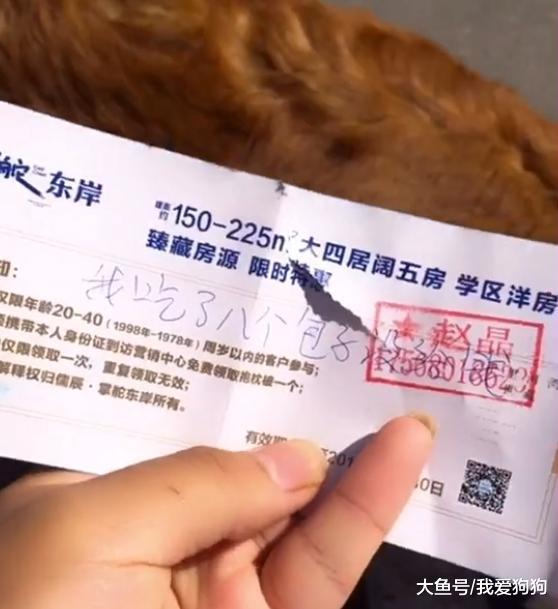 舵 东岸
建面约150-225m²大四居阔五房 学区洋房
臻藏房源 限时特惠
印:
我吃了八个包子没给钱
赵晶
仅限年龄20-40(1998年-1978年)周岁以内的客户参与;
携带本人身份证到访营销中心免费领取抱枕被一个;
仅限领取一次,重复领取无效;
解释权归儒辰·掌舵东岸所有。
有效期
201
0日
大鱼号/我爱狗狗